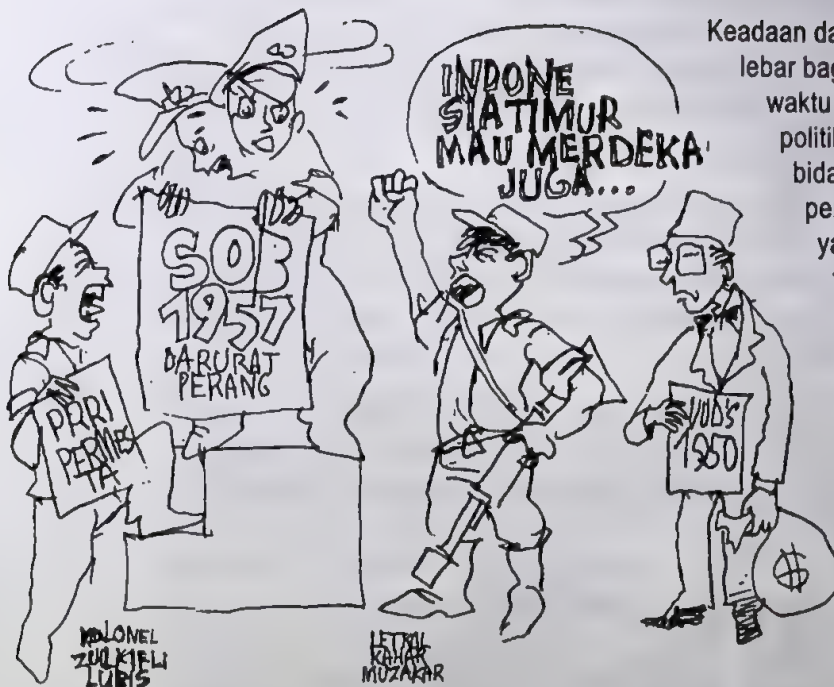 Keadaan da
lebar bag
waktu
politi
bida
pe
ya
INDONE
SIA TIMUR
MAU MERDEKA
JUGA...
SOB
1957
DARURAT
PERANG
PRRI
PERMES
TA
UUD'S
1950
$
KOLONEL
ZULKIFLI
LUBIS
LETKOL
KAHAR
MUZAKAR